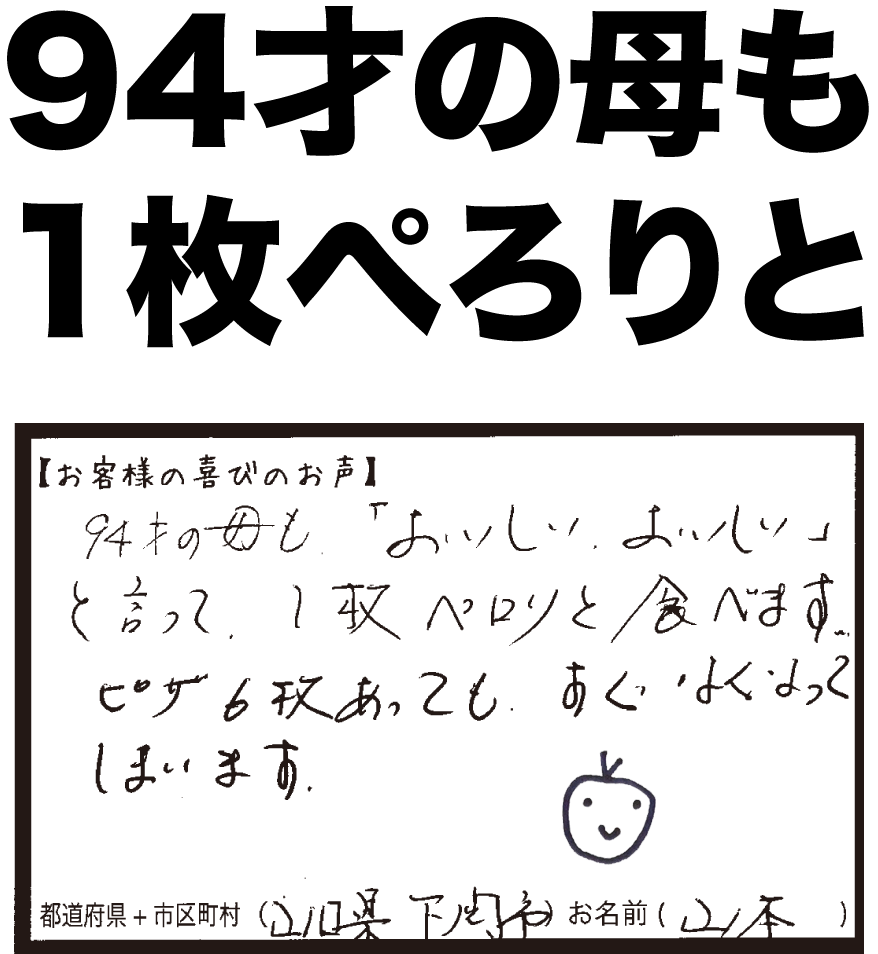 94才の母も
1枚ぺろりと
【お客様の喜びのお声】
94才の母も、「おいしい、おいしい」
と言って、1枚ペロリと食べます。
ピザ6枚あっても、すぐなくなって
しまいます。
都道府県+市区町村(山口県下関市)お名前(山本)